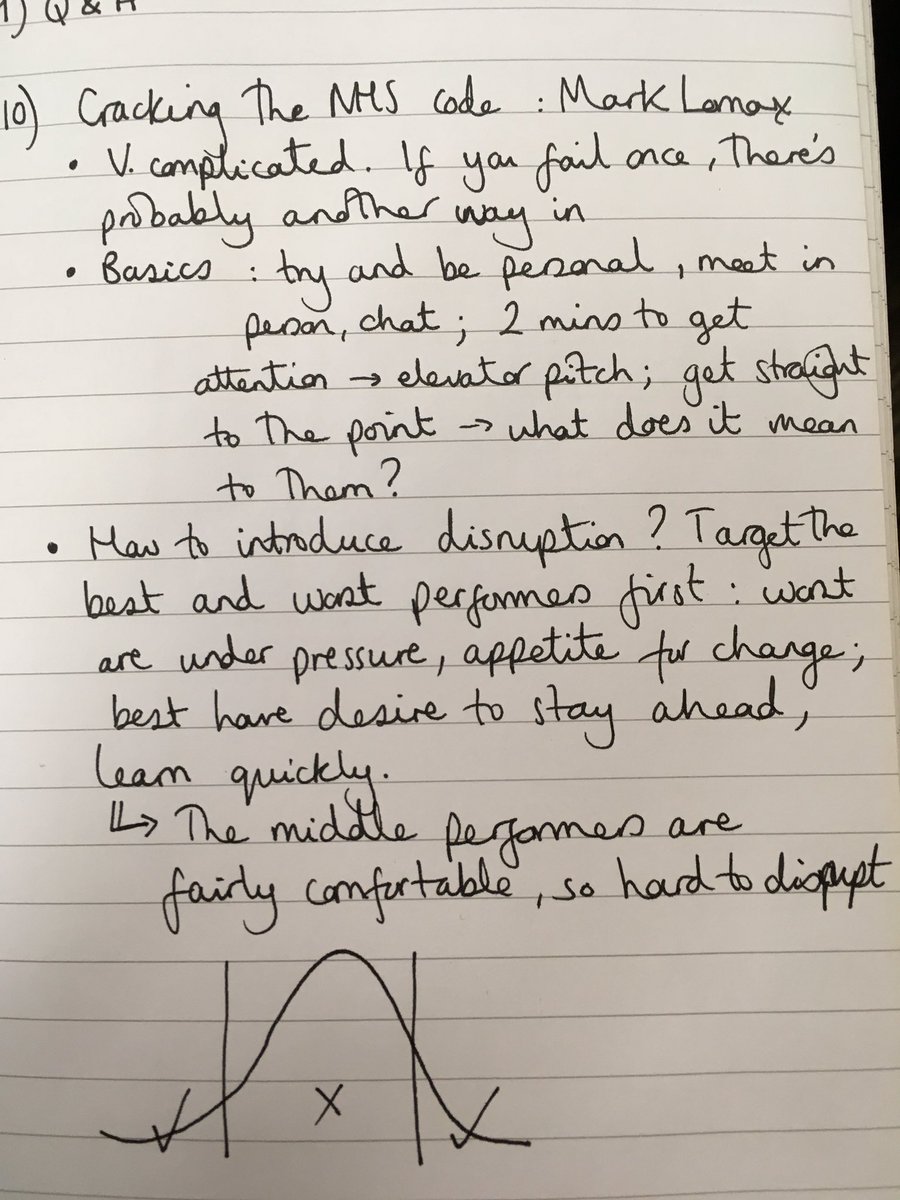 1) Q & A
10) Cracking the NHS code : Mark Lomax
• V. complicated. If you fail once, there's
probably another way in
• Basics : try and be personal, meet in
person, chat; 2 mins to get
attention → elevator pitch; get straight
to the point → what does it mean
to them?
• How to introduce disruption? Target the
best and worst performers first: worst
are under pressure, appetite for change;
best have desire to stay ahead,
learn quickly.
↳ The middle performers are
fairly comfortable, so hard to disrupt
X